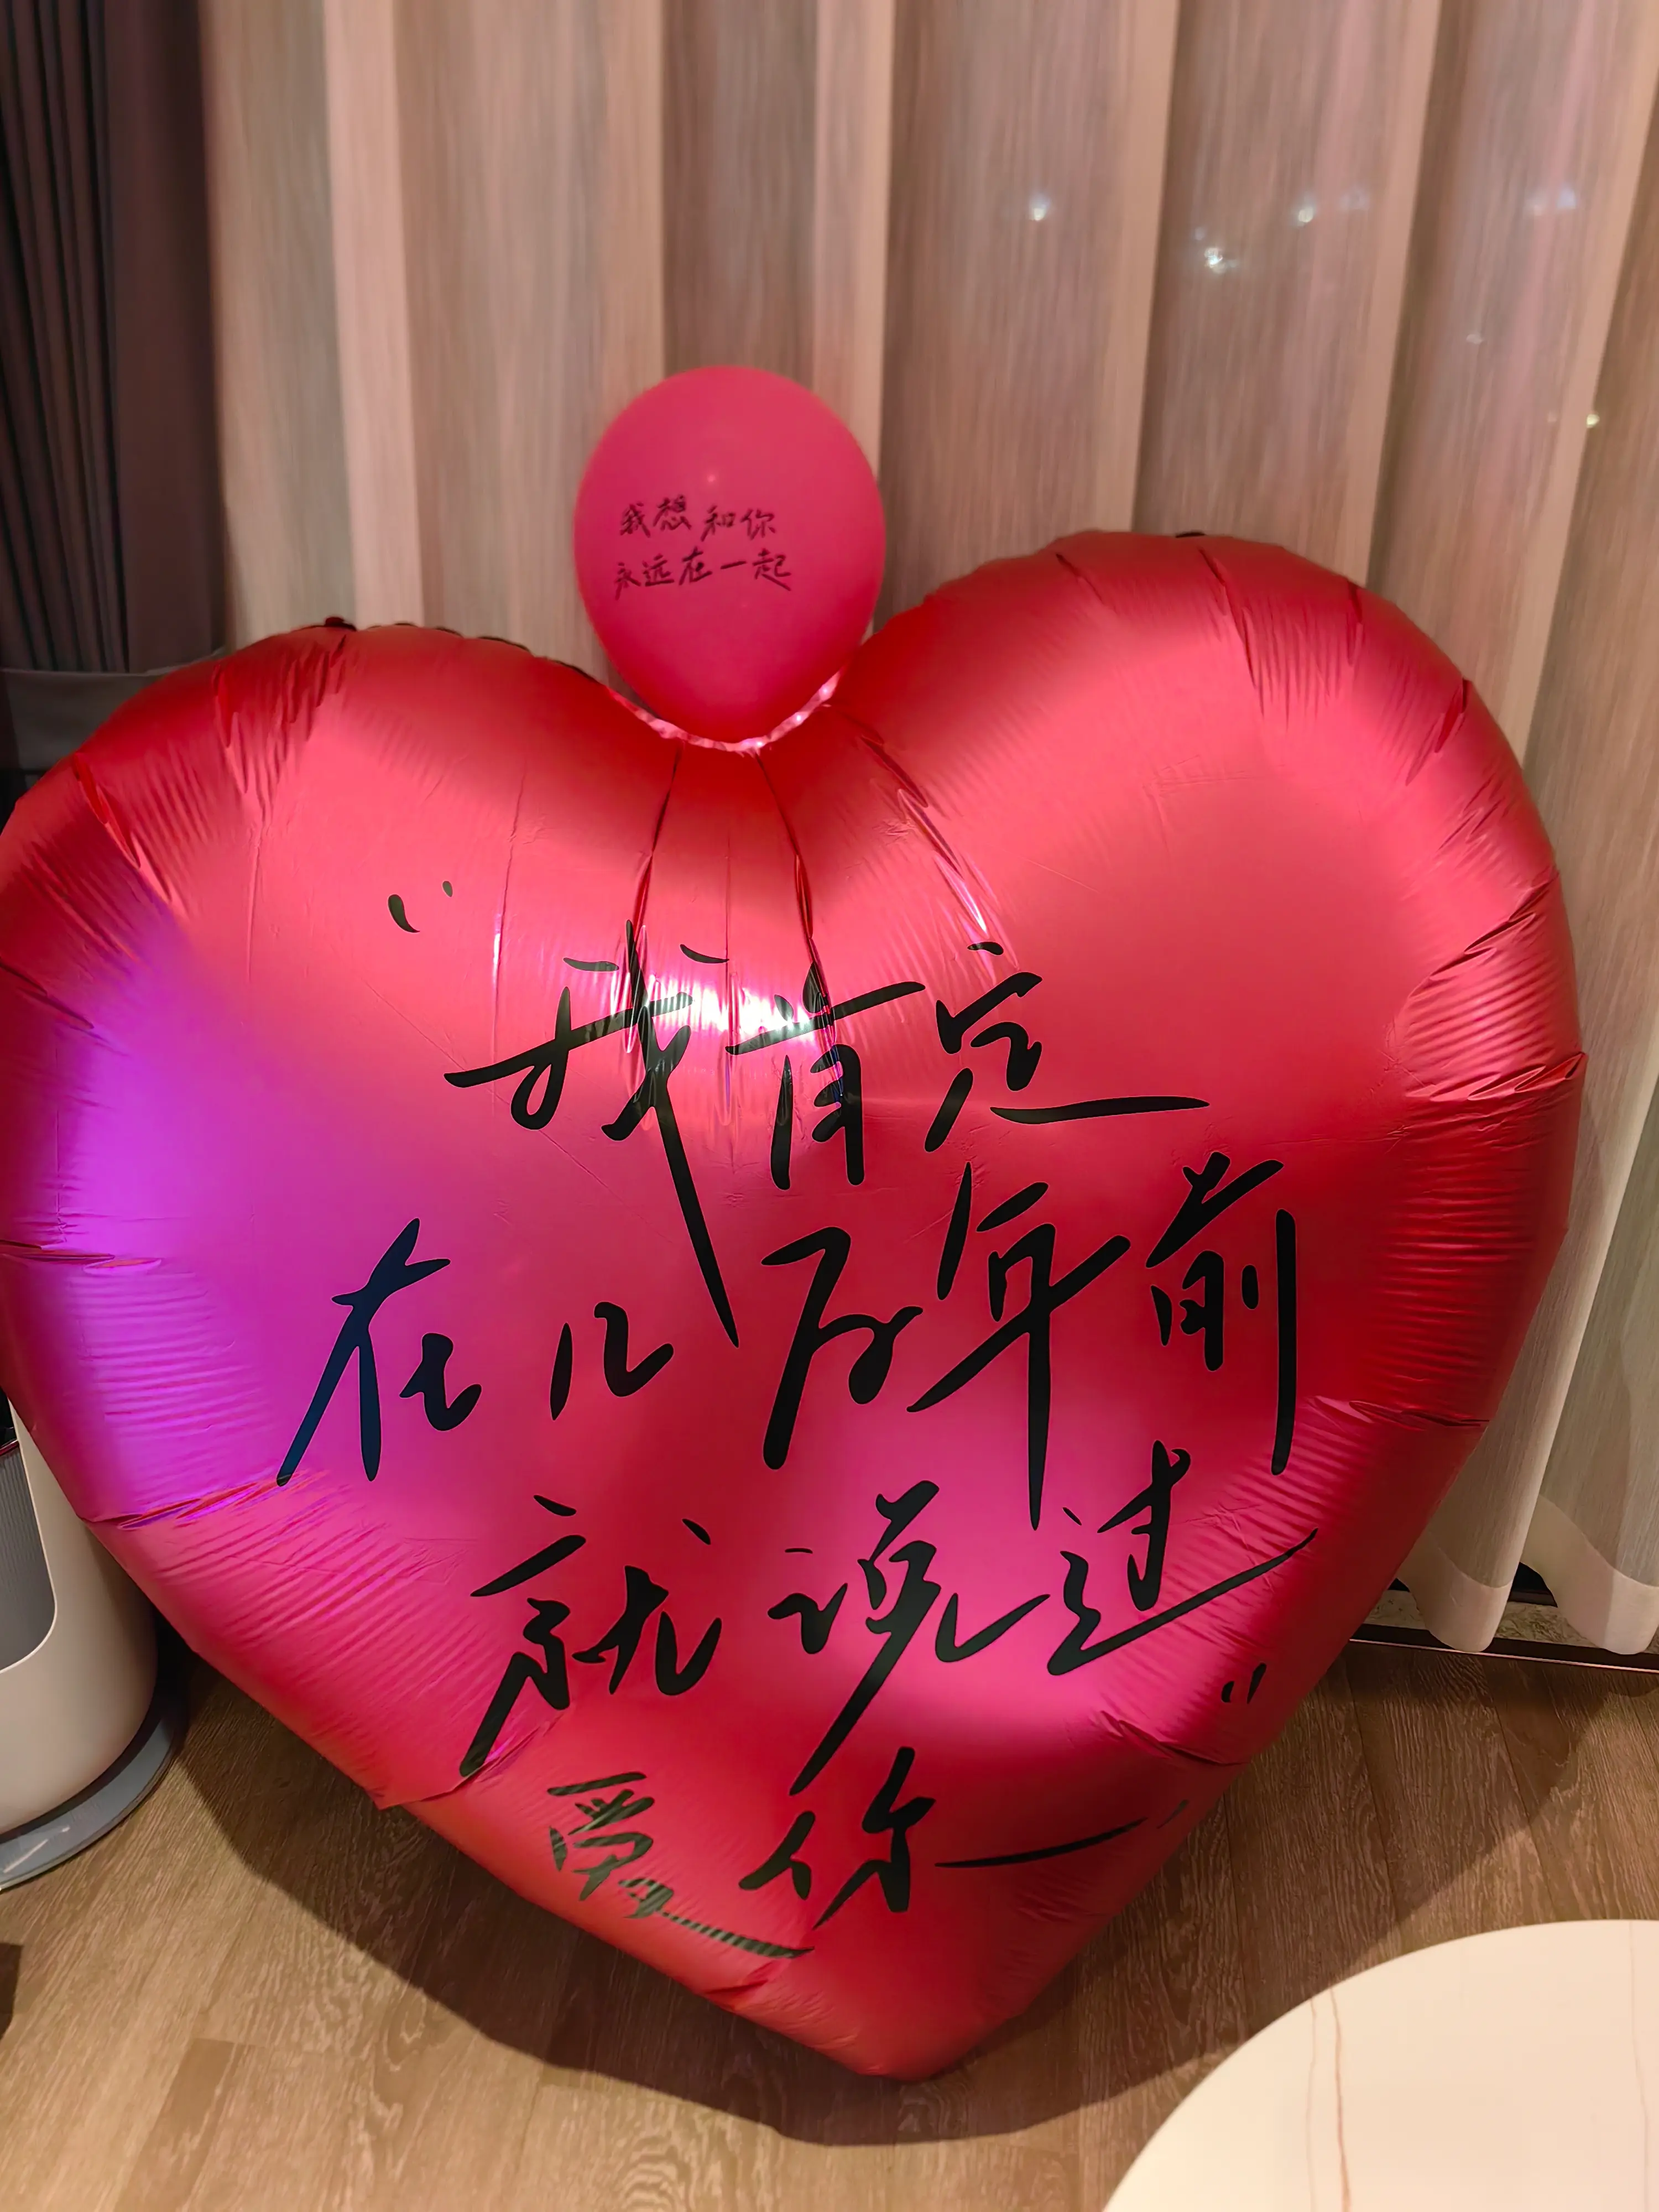 我想和你
永远在一起
“我肯定
在几万年前
就说过
爱你”